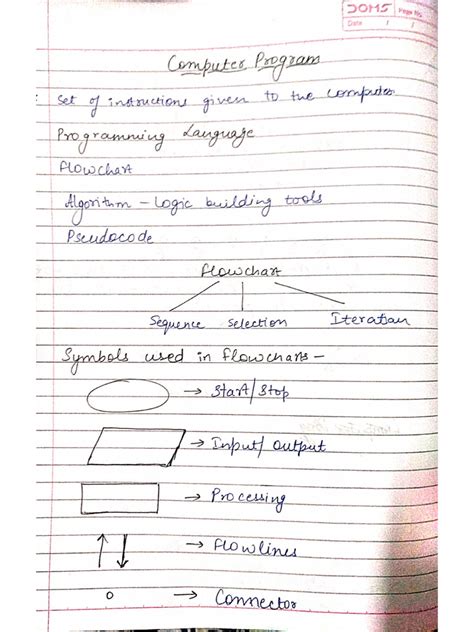 DOMS Page No.
Date / /
Computer Program
Set of instructions given to the computer
Programming Language
Flowchart
Algorithm - Logic building tools
Pseudocode
Flowchart
Sequence Selection Iteration
Symbols used in flowcharts -
→ Start/Stop
→ Input/Output
→ Processing
→ Flowlines
→ Connector